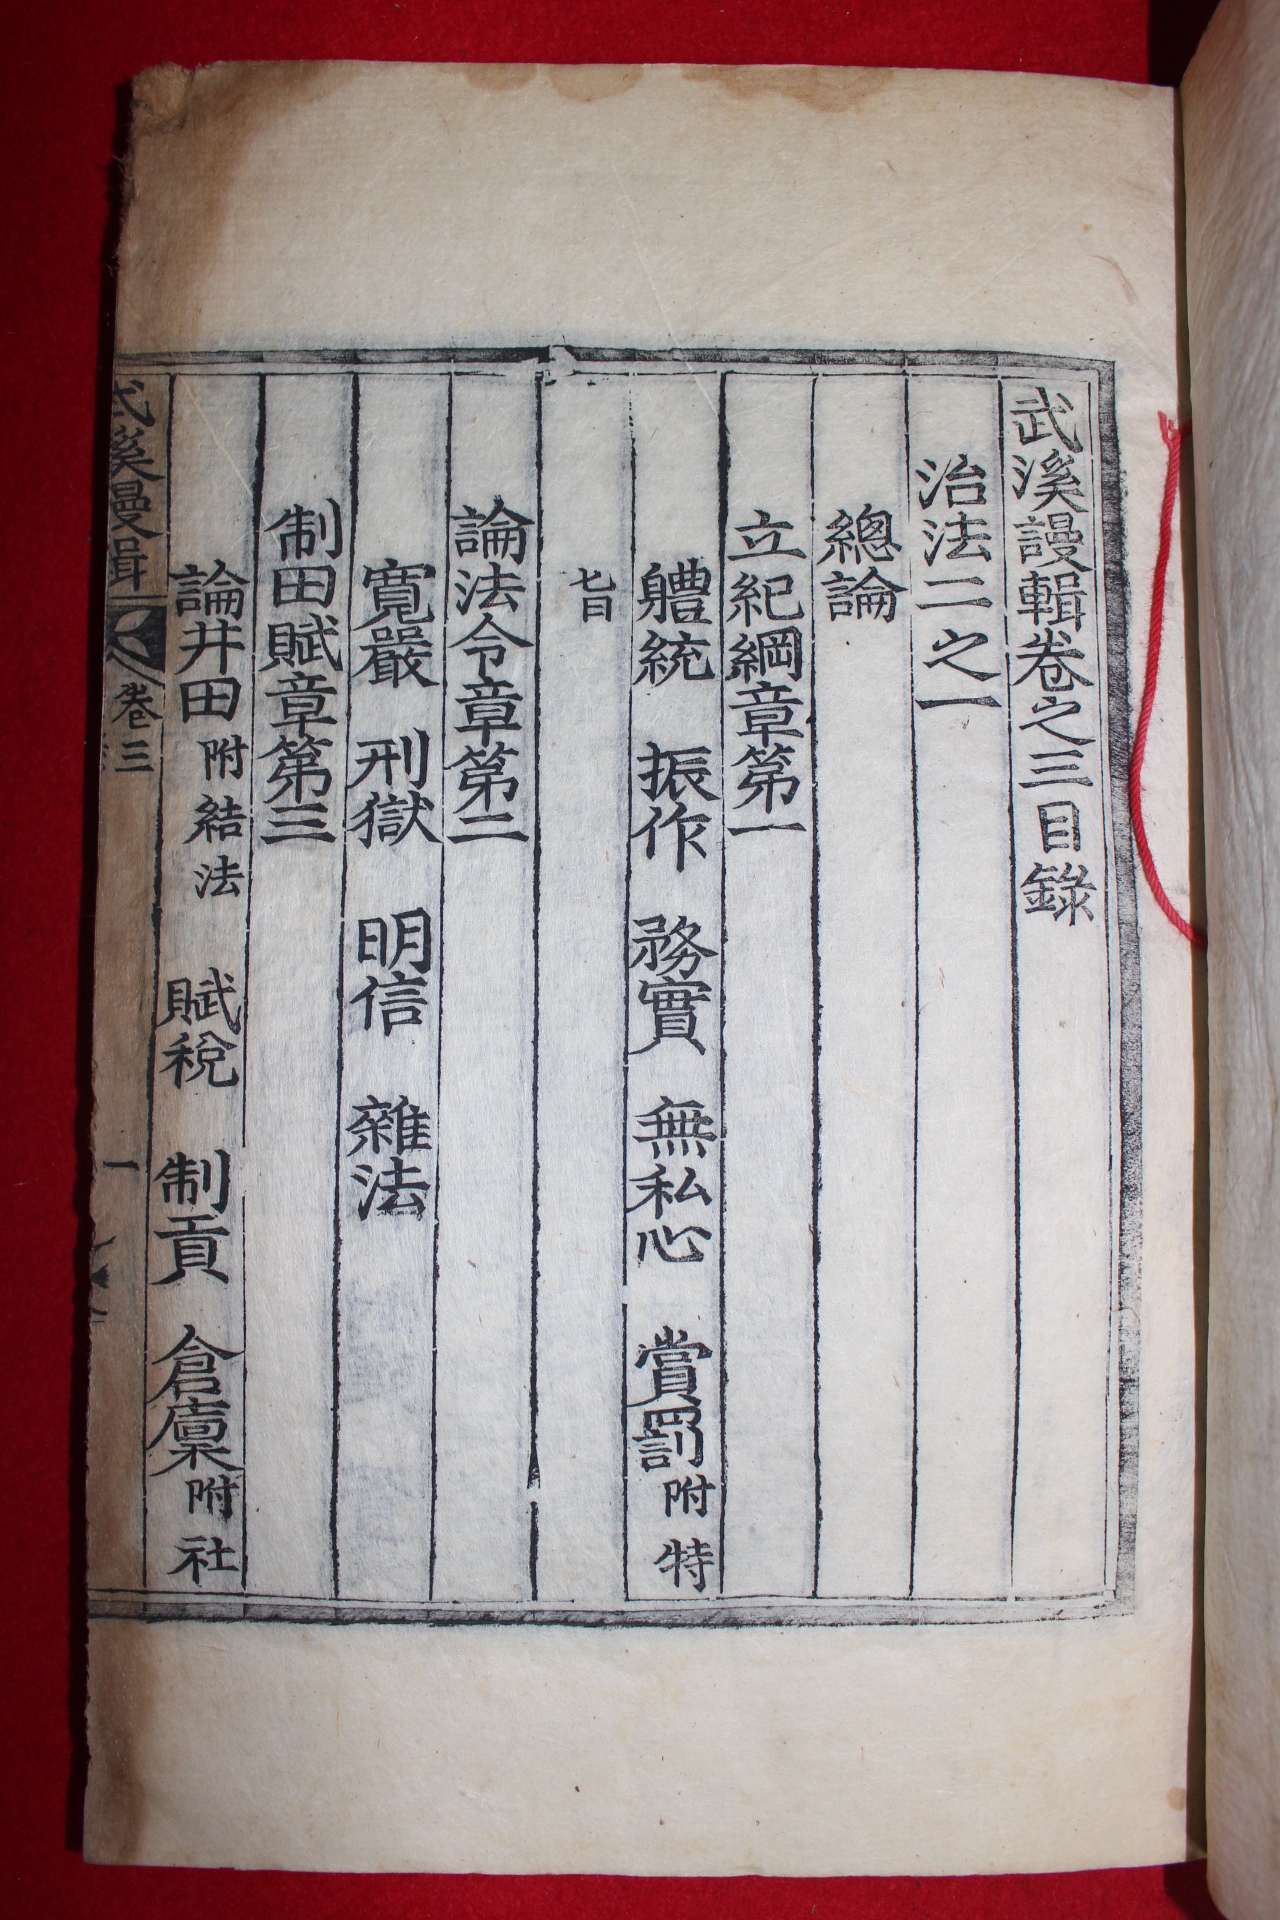 武溪謾輯卷之三目錄
治法二之一
總論
立紀綱章第一
軆統 振作 務實 無私心 賞罰 附特
旨
論法令章第二
寬嚴 刑獄 明信 雜法
制田賦章第三
論井田 附結法 賦稅 制貢 倉廩 附社
武溪謾輯 卷三 一